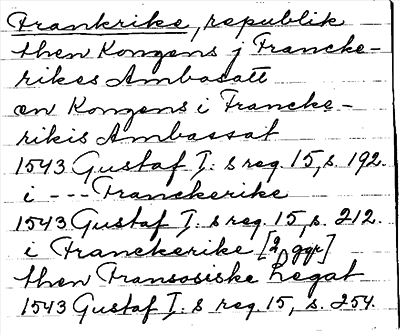 Frankrike, republik
then Kongens j Francke-
rikes Ambasatt
en Kongens i Francke-
rikis Ambassat
1543 Gustaf I:s reg. 15, s. 192.
i --- Franckerike
1543 Gustaf I:s reg. 15, s. 212.
i Franckerike [2 ggr]
then Fransosiske Legat
1543 Gustaf I:s reg. 15, s. 254.